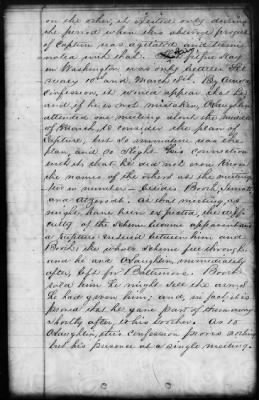 on the other, it existed only during
the period when this absurd project
of Capture was agitated, and termi-
nated with that. stay
in Washington was only between Feb-
ruary 10th and March 18th. By Arnold's
Confession, it would appear that he,
and, if he is not mistaken, O'Laughlin
attended one meeting about the middle
of March, to consider the plan of
Capture, but so immature was the
plan, and so slight his connection
with it that he did not even know
the names of the others at the meeting
two in number - besides Booth, Surratt
and Atzerodt. At that meeting, as
might have been expected, the diffi-
culty of the scheme became apparent and
a rupture ensued between him and
Booth; the whole scheme fell through,
and he and O'Laughlin immediately
after, left for Baltimore. Booth
told him he might sell the arms
he had given him; and, in fact it is
proved that he gave part of them away
shortly after, to his brother. As to
O'Laughlin, this confession proves nothing
but his presence at a single meeting.